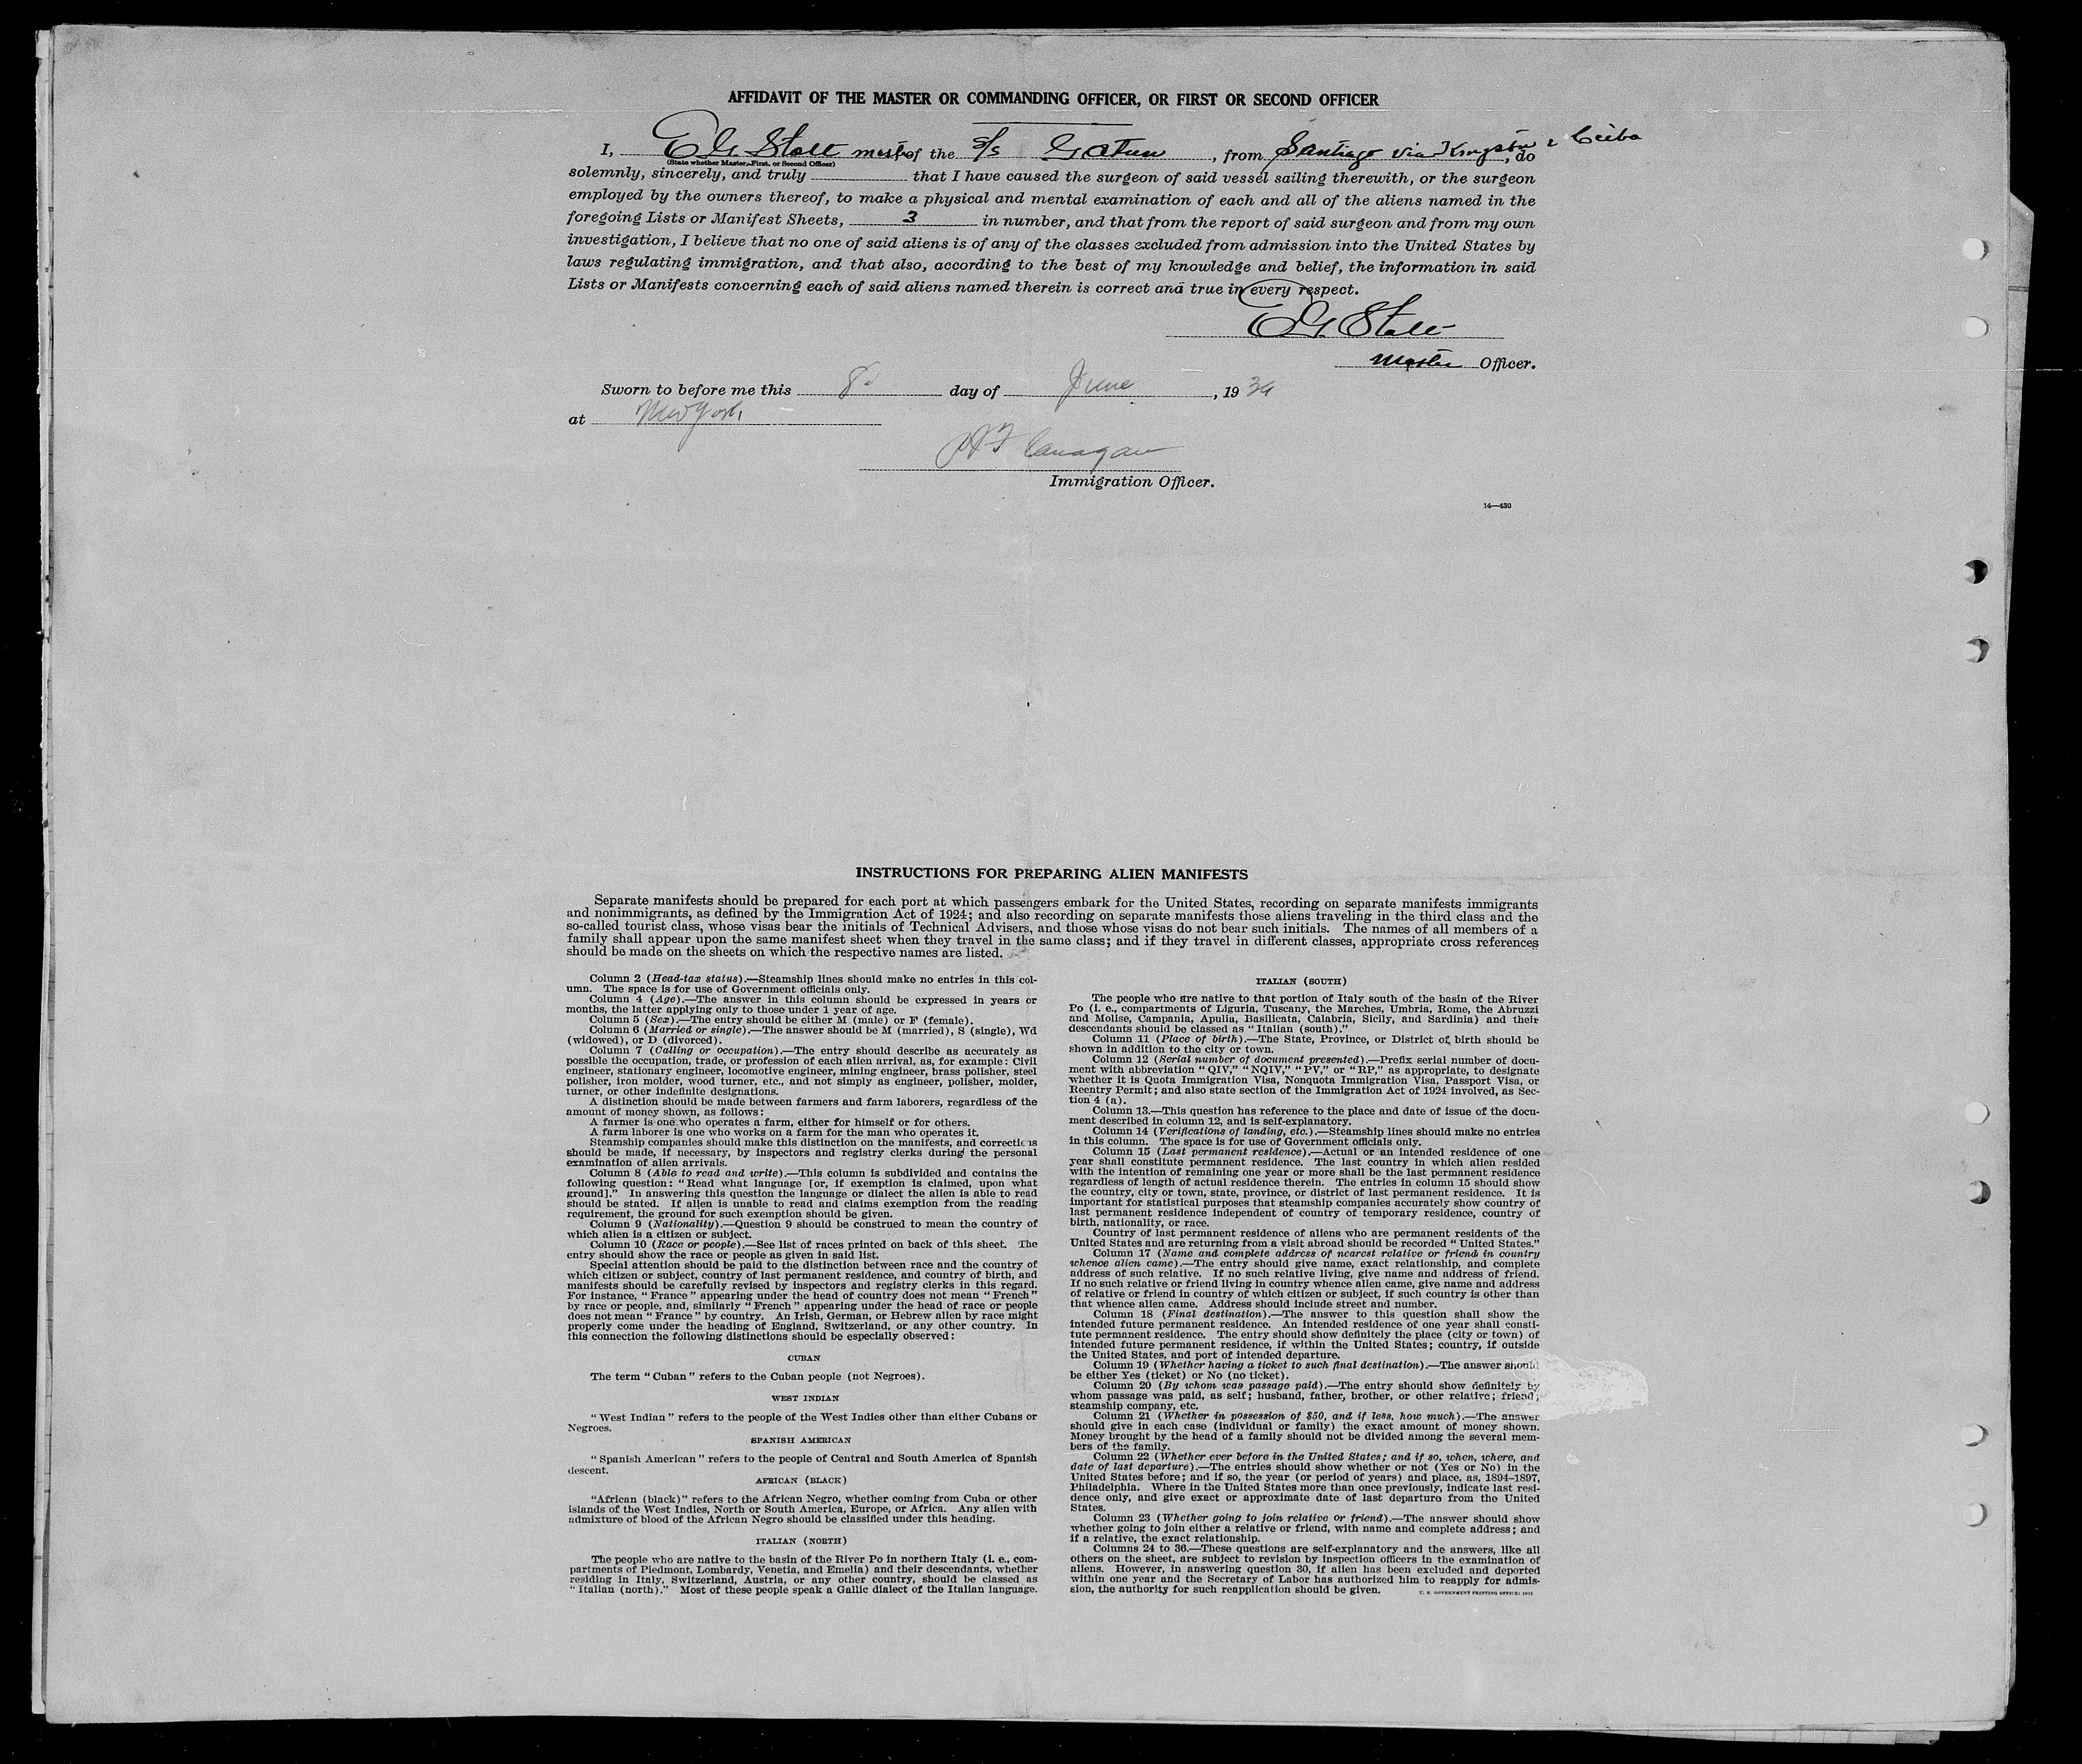 AFFIDAVIT OF THE MASTER OR COMMANDING OFFICER, OR FIRST OR SECOND OFFICER
I, E G. Stolt master of the S/S Gatun, from Santiago via Kingston & Ceiba, do
(State whether Master, First, or Second Officer)
solemnly, sincerely, and truly that I have caused the surgeon of said vessel sailing therewith, or the surgeon
employed by the owners thereof, to make a physical and mental examination of each and all of the aliens named in the
foregoing Lists or Manifest Sheets, 3 in number, and that from the report of said surgeon and from my own
investigation, I believe that no one of said aliens is of any of the classes excluded from admission into the United States by
laws regulating immigration, and that also, according to the best of my knowledge and belief, the information in said
Lists or Manifests concerning each of said aliens named therein is correct and true in every respect.
E G. Stolt
Master Officer.
Sworn to before me this 8 day of June, 193
at New York
Flanagan
Immigration Officer.
14—430
INSTRUCTIONS FOR PREPARING ALIEN MANIFESTS
Separate manifests should be prepared for each port at which passengers embark for the United States, recording on separate manifests immigrants
and nonimmigrants, as defined by the Immigration Act of 1924; and also recording on separate manifests those aliens traveling in the third class and the
so-called tourist class, whose visas bear the initials of Technical Advisers, and those whose visas do not bear such initials. The names of all members of a
family shall appear upon the same manifest sheet when they travel in the same class; and if they travel in different classes, appropriate cross references
should be made on the sheets on which the respective names are listed.
Column 2 (Head-tax status).—Steamship lines should make no entries in this col-
umn. The space is for use of Government officials only.
Column 4 (Age).—The answer in this column should be expressed in years or
months, the latter applying only to those under 1 year of age.
Column 5 (Sex).—The entry should be either M (male) or F (female).
Column 6 (Married or single).—The answer should be M (married), S (single), Wd
(widowed), or D (divorced).
Column 7 (Calling or occupation).—The entry should describe as accurately as
possible the occupation, trade, or profession of each alien arrival, as, for example: Civil
engineer, stationary engineer, locomotive engineer, mining engineer, brass polisher, steel
polisher, iron molder, wood turner, etc., and not simply as engineer, polisher, molder,
turner, or other indefinite designations.
A distinction should be made between farmers and farm laborers, regardless of the
amount of money shown, as follows:
A farmer is one who operates a farm, either for himself or for others.
A farm laborer is one who works on a farm for the man who operates it.
Steamship companies should make this distinction on the manifests, and corrections
should be made, if necessary, by inspectors and registry clerks during the personal
examination of alien arrivals.
Column 8 (Able to read and write).—This column is subdivided and contains the
following question: "Read what language [or, if exemption is claimed, upon what
ground]." In answering this question the language or dialect the alien is able to read
should be stated. If alien is unable to read and claims exemption from the reading
requirement, the ground for such exemption should be given.
Column 9 (Nationality).—Question 9 should be construed to mean the country of
which alien is a citizen or subject.
Column 10 (Race or people).—See list of races printed on back of this sheet. The
entry should show the race or people as given in said list.
Special attention should be paid to the distinction between race and the country of
which citizen or subject, country of last permanent residence, and country of birth, and
manifests should be carefully revised by inspectors and registry clerks in this regard.
For instance, "France" appearing under the head of country does not mean "French"
by race or people, and, similarly "French" appearing under the head of race or people
does not mean "France" by country. An Irish, German, or Hebrew alien by race might
properly come under the heading of England, Switzerland, or any other country. In
this connection the following distinctions should be especially observed:
CUBAN
The term "Cuban" refers to the Cuban people (not Negroes).
WEST INDIAN
"West Indian" refers to the people of the West Indies other than either Cubans or
Negroes.
SPANISH AMERICAN
"Spanish American" refers to the people of Central and South America of Spanish
descent.
AFRICAN (BLACK)
"African (black)" refers to the African Negro, whether coming from Cuba or other
islands of the West Indies, North or South America, Europe, or Africa. Any alien with
admixture of blood of the African Negro should be classified under this heading.
ITALIAN (NORTH)
The people who are native to the basin of the River Po in northern Italy (i. e., com-
partments of Piedmont, Lombardy, Venetia, and Emelia) and their descendants, whether
residing in Italy, Switzerland, Austria, or any other country, should be classed as
"Italian (north)." Most of these people speak a Gallic dialect of the Italian language.
ITALIAN (SOUTH)
The people who are native to that portion of Italy south of the basin of the River
Po (i. e., compartments of Liguria, Tuscany, the Marches, Umbria, Rome, the Abruzzi
and Molise, Campania, Apulia, Basilicata, Calabria, Sicily, and Sardinia) and their
descendants should be classed as "Italian (south)."
Column 11 (Place of birth).—The State, Province, or District of birth should be
shown in addition to the city or town.
Column 12 (Serial number of document presented).—Prefix serial number of docu-
ment with abbreviation "QIV," "NQIV," "PV," or "RP," as appropriate, to designate
whether it is Quota Immigration Visa, Nonquota Immigration Visa, Passport Visa, or
Reentry Permit; and also state section of the Immigration Act of 1924 involved, as Sec-
tion 4 (a).
Column 13.—This question has reference to the place and date of issue of the docu-
ment described in column 12, and is self-explanatory.
Column 14 (Verifications of landing, etc.).—Steamship lines should make no entries
in this column. The space is for use of Government officials only.
Column 15 (Last permanent residence).—Actual or an intended residence of one
year shall constitute permanent residence. The last country in which alien resided
with the intention of remaining one year or more shall be the last permanent residence
regardless of length of actual residence therein. The entries in column 15 should show
the country, city or town, state, province, or district of last permanent residence. It is
important for statistical purposes that steamship companies accurately show country of
last permanent residence independent of country of temporary residence, country of
birth, nationality, or race.
Country of last permanent residence of aliens who are permanent residents of the
United States and are returning from a visit abroad should be recorded "United States."
Column 17 (Name and complete address of nearest relative or friend in country
whence alien came).—The entry should give name, exact relationship, and complete
address of such relative. If no such relative living, give name and address of friend.
If no such relative or friend living in country whence alien came, give name and address
of relative or friend in country of which citizen or subject, if such country is other than
that whence alien came. Address should include street and number.
Column 18 (Final destination).—The answer to this question shall show the
intended future permanent residence. An intended residence of one year shall consti-
tute permanent residence. The entry should show definitely the place (city or town) of
intended future permanent residence, if within the United States; country, if outside
the United States, and port of intended departure.
Column 19 (Whether having a ticket to such final destination).—The answer should
be either Yes (ticket) or No (no ticket).
Column 20 (By whom was passage paid).—The entry should show definitely by
whom passage was paid, as self; husband, father, brother, or other relative; friend;
steamship company, etc.
Column 21 (Whether in possession of $50, and if less, how much).—The answer
should give in each case (individual or family) the exact amount of money shown.
Money brought by the head of a family should not be divided among the several mem-
bers of the family.
Column 22 (Whether ever before in the United States; and if so, when, where, and
date of last departure).—The entries should show whether or not (Yes or No) in the
United States before; and if so, the year (or period of years) and place, as, 1894–1897,
Philadelphia. Where in the United States more than once previously, indicate last resi-
dence only, and give exact or approximate date of last departure from the United
States.
Column 23 (Whether going to join relative or friend).—The answer should show
whether going to join either a relative or friend, with name and complete address; and
if a relative, the exact relationship.
Columns 24 to 36.—These questions are self-explanatory and the answers, like all
others on the sheet, are subject to revision by inspection officers in the examination of
aliens. However, in answering question 30, if alien has been excluded and deported
within one year and the Secretary of Labor has authorized him to reapply for admis-
sion, the authority for such reapplication should be given.
U. S. GOVERNMENT PRINTING OFFICE: 1931